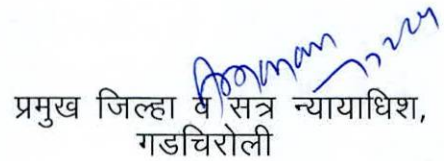 प्रमुख जिल्हा व सत्र न्यायाधिश,
गडचिरोली